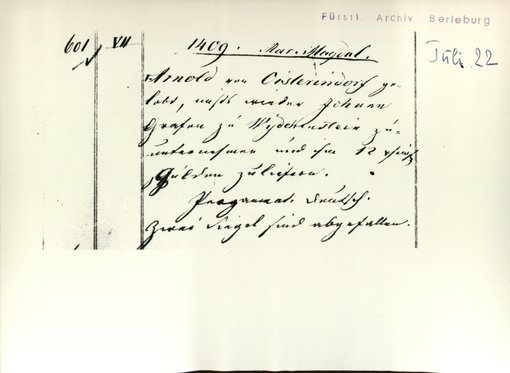 Fürstl. Archiv Berleburg
Juli 22
601 VII 1409. Mar. Magdal.
Arnold von Oosterendorf ge-
lobt, nichts wieder Johann
Grafen zu Wydchenstein zu
unternehmen und ihm 12 rhein.
Gulden zu liefern.
Pergament. Deutsch.
Zwei Siegel sind abgefallen.